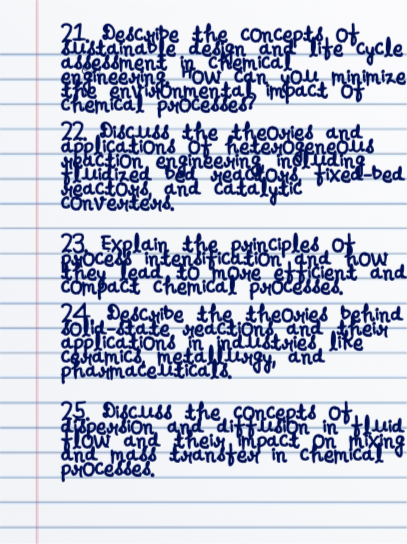 21. Describe the concepts of
sustainable design and life cycle
assessment in chemical
engineering. How can you minimize
the environmental impact of
chemical processes?
22. Discuss the theories and
applications of heterogeneous
reaction engineering, including
fluidized bed reactors, fixed-bed
reactors, and catalytic
converters.
23. Explain the principles of
process intensification and how
they lead to more efficient and
compact chemical processes.
24. Describe the theories behind
solid-state reactions and their
applications in industries like
ceramics, metallurgy, and
pharmaceuticals.
25. Discuss the concepts of
dispersion and diffusion in fluid
flow and their impact on mixing
and mass transfer in chemical
processes.